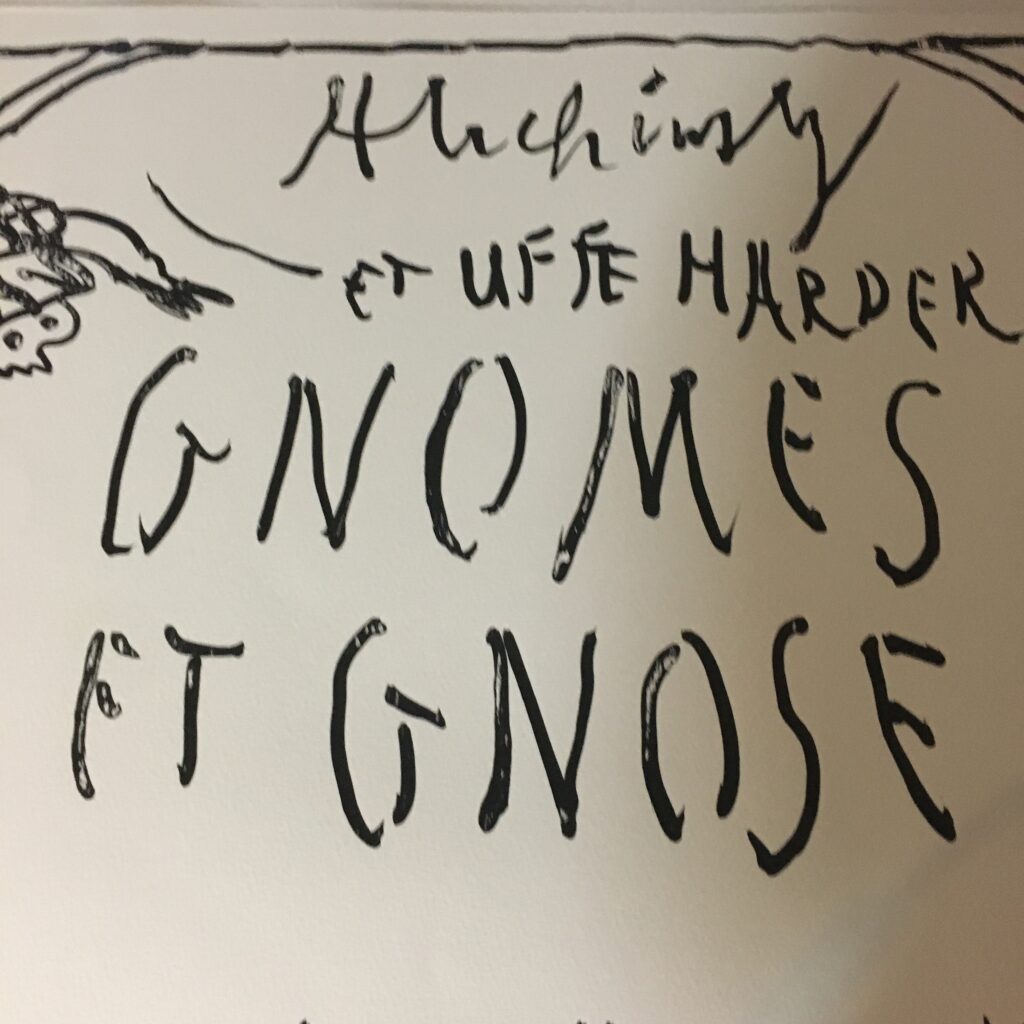 Alechinsky
ET UFFE HARDER
GNOMES
ET GNOSE